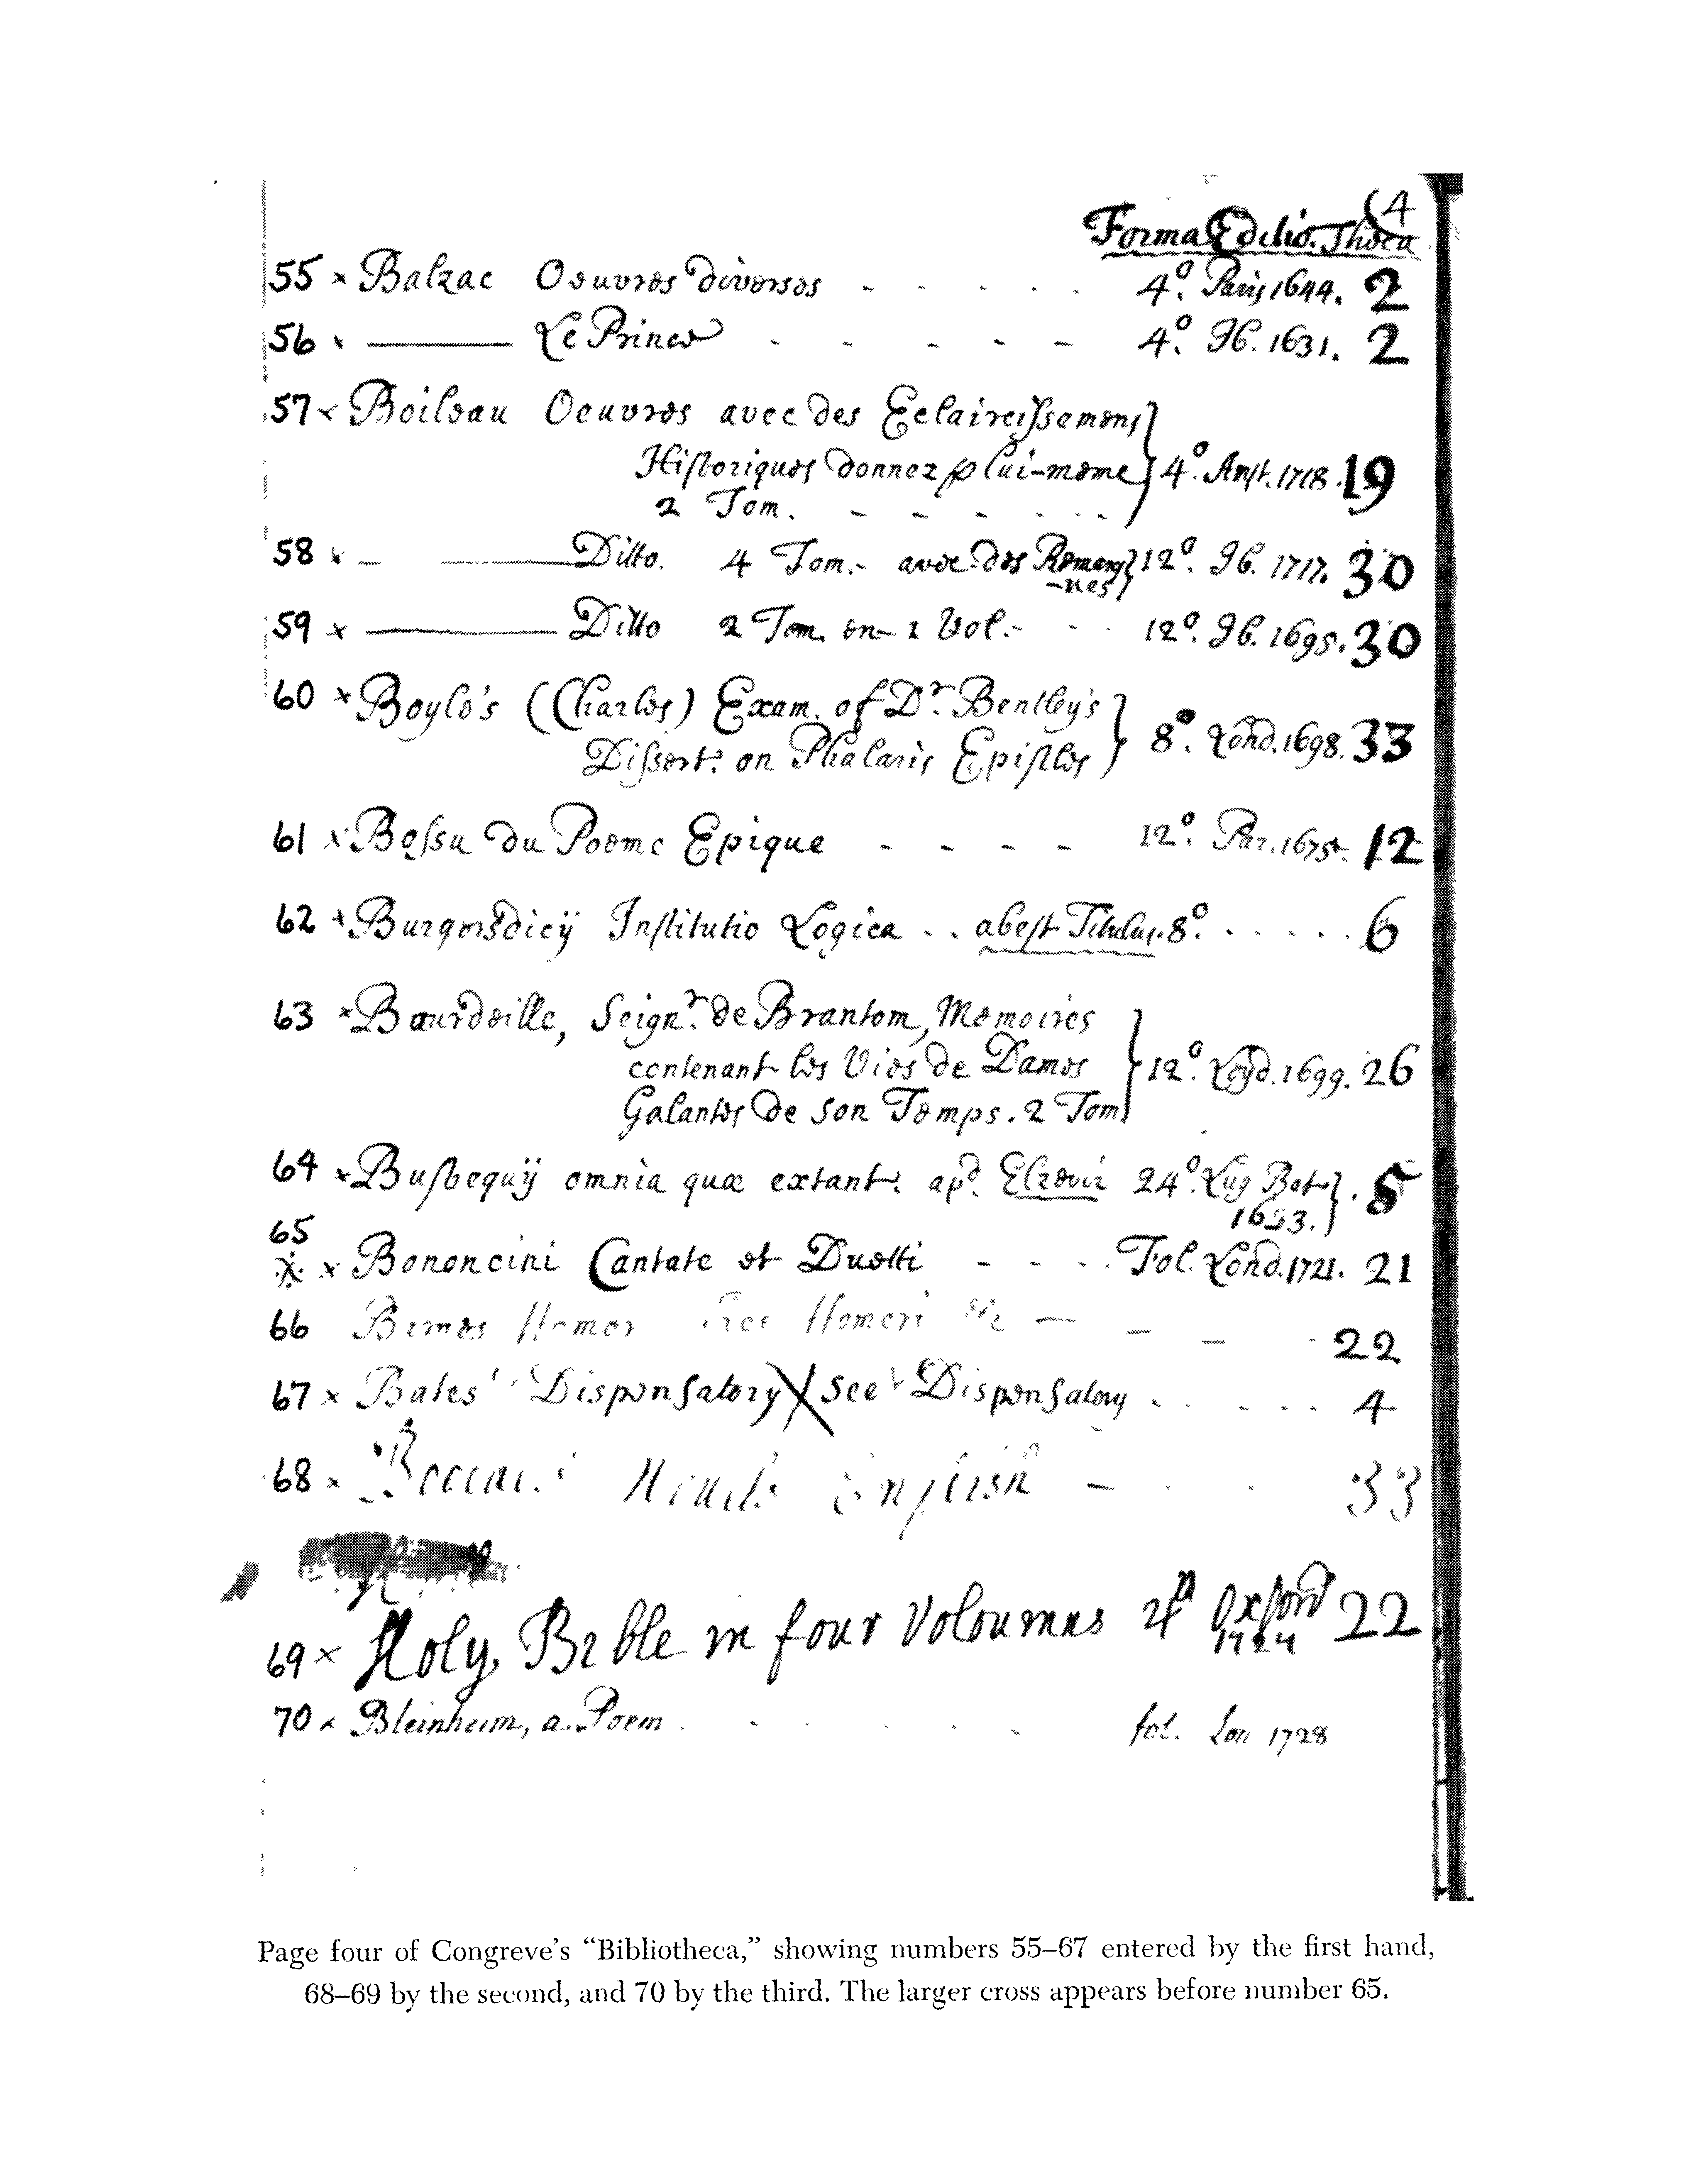 (4
Forma Editio. Theca
55 × Balzac Oeuvres diverses - - - - - 4º. Paris 1644. 2
56 × ——— Le Prince - - - - - 4º. Ib. 1631. 2
57 × Boileau Oeuvres avec des Eclaircissemens
Historiques donnez p lui-meme } 4º. Amst. 1718. 19
2 Tom. - - - - - -
58 × - ——— Ditto. 4 Tom. - avec des Remarq } 12º. Ib. 1717. 30
-ues
59 × ——— Ditto 2 Tom. en - 1 Vol. - - - 12º. Ib. 1695. 30
60 × Boyle's (Charles) Exam. of Dr. Bentley's
Dissert: on Phalaris Epistles } 8º. Lond. 1698. 33
61 × Bossu du Poeme Epique - - - - 12º. Par. 1675. 12
62 × Burgersdicij Institutio Logica . . abest Titulus. 8º. . . . . . 6
63 × Bourdeille, Seignr. de Brantom, Memoires
contenant les Vies de Dames } 12º. Leyd. 1699. 26
Galantes de son Temps. 2 Tom
64 × Busbequij omnia quæ extant. apd. Elzevir 24º. Lug Bat } . 5
1633.
65
× × Bononcini Cantate et Duetti - - - . Fol. Lond. 1721. 21
66 Homer Homeri — - - - 22
67 × Bates' Dispensatory / See Dispensatory . . - - - 4
68 × English - . . 33
69 × Holy Bible in four Voloumns 4º Oxford 22
1724
70 × Bleinheim, a Poem . - - - - fol. Lon 1728
Page four of Congreve's “Bibliotheca,” showing numbers 55–67 entered by the first hand,
68–69 by the second, and 70 by the third. The larger cross appears before number 65.